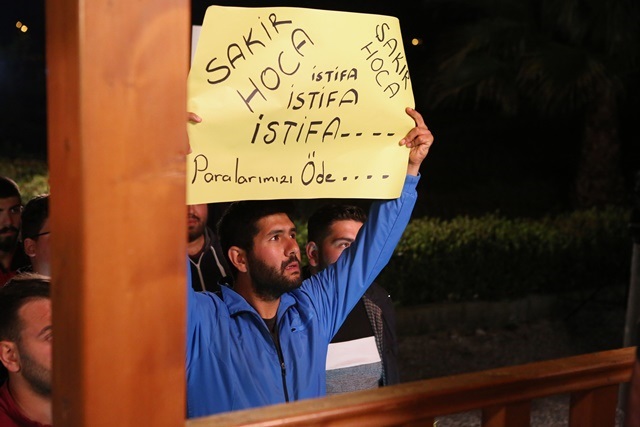 SAKİR
HOCA
SAKİR
HOCA
İSTİFA
İSTİFA
İSTİFA----
Paralarımızı Öde....